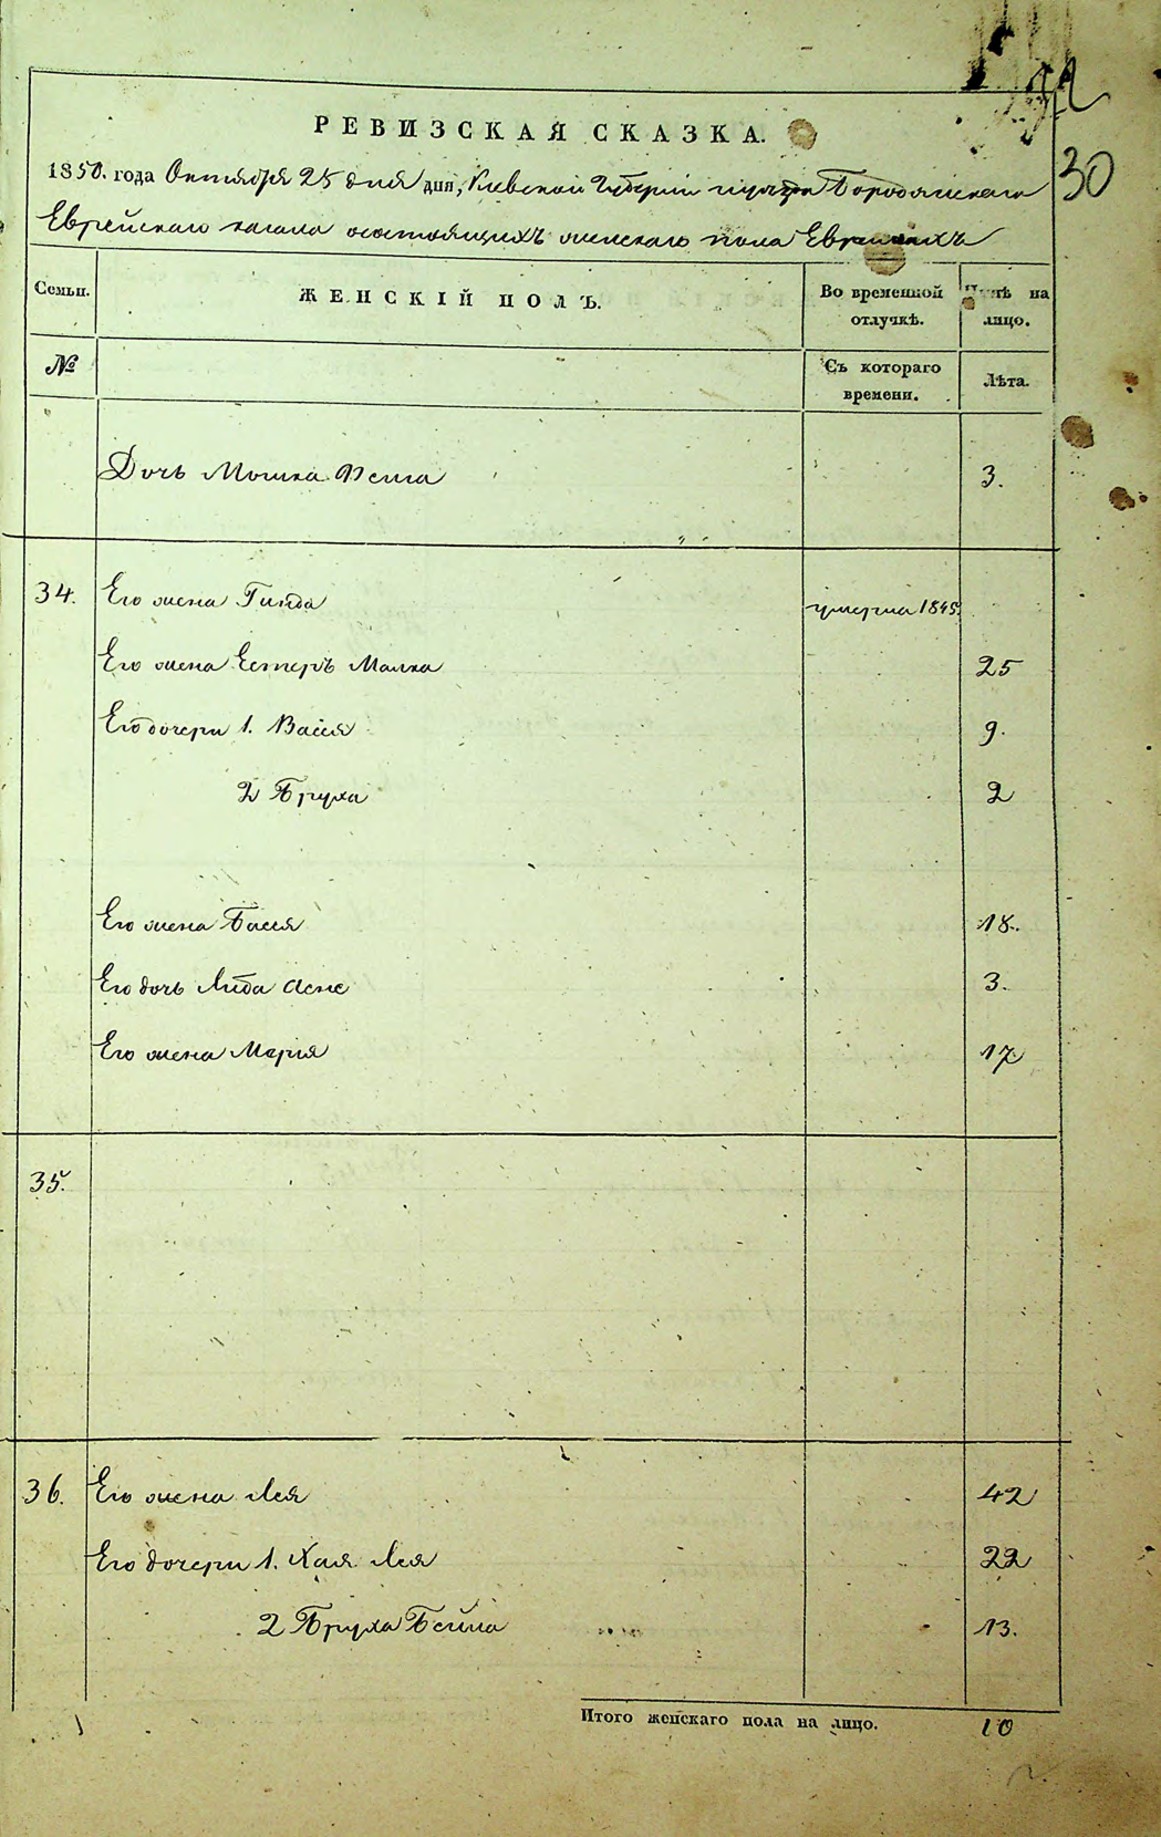 30
РЕВИЗСКАЯ СКАЗКА.
1850. года Октября 25 дня дня, Киевской Губернии Бородянскаго
Еврейскаго кагала о состоящихъ женскаго пола Евреяхъ
Семьи.
ЖЕНСКІЙ ПОЛЪ.
Во временной отлучкѣ.
на лицо.
№
Съ котораго времени.
Лѣта.
Дочь Мошка 3.
34. Его жена Гинда умерла 1845.
Его жена Естеръ Малка 25
Его дочери 1. Вася 9.
2 Бруха 2
Его жена Бася 18.
Его дочь Либа Асне 3.
Его жена Марія 17
35.
36. Его жена Лея 42
Его дочери 1. Хая Лея 22
2 Бруха Бейла 13.
Итого женскаго пола на лицо. 10